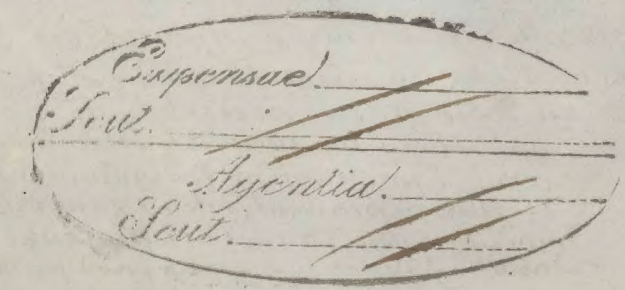 Expensae
Scut.
Agentia
Scut.